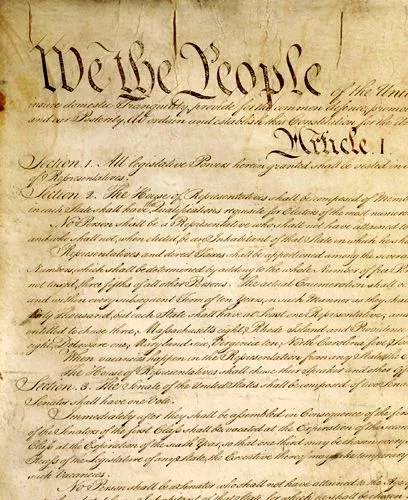 We the People of the Unit
insure domestic Tranquility, provide for the common defence, promo
and our Posterity, do ordain and establish this Constitution for the Un
Article. I.
Section. 1. All legislative Powers herein granted shall be vested in a
of Representatives.
Section. 2. The House of Representatives shall be composed of Memb
in each State shall have Qualifications requisite for Electors of the most numero
No Person shall be a Representative who shall not have attained to
and who shall not, when elected, be an Inhabitant of that State in which he sha
Representatives and direct Taxes shall be apportioned among the severa
Numbers, which shall be determined by adding to the whole Number of free Per
not taxed, three fifths of all other Persons. The actual Enumeration shall b
and within every subsequent Term of ten Years, in such Manner as they sha
thirty Thousand, but each State shall have at Least one Representative; and
entitled to chuse three, Massachusetts eight, Rhode Island and Providence
eight, Delaware one, Maryland six, Virginia ten, North Carolina five, Sou
When vacancies happen in the Representation from any State, the E
The House of Representatives shall chuse their Speaker and other Off
Section. 3. The Senate of the United States shall be composed of two Sena
Senator shall have one Vote.
Immediately after they shall be assembled in Consequence of the first
of the Senators of the first Class shall be vacated at the Expiration of the secon
Class at the Expiration of the sixth Year, so that one third may be chosen every
Recess of the Legislature of any State, the Executive thereof may make temporary
such Vacancies.
No Person shall be a Senator who shall not have attained to the Age
not, when elected, be an Inhabitant of that State for which he shall be chosen